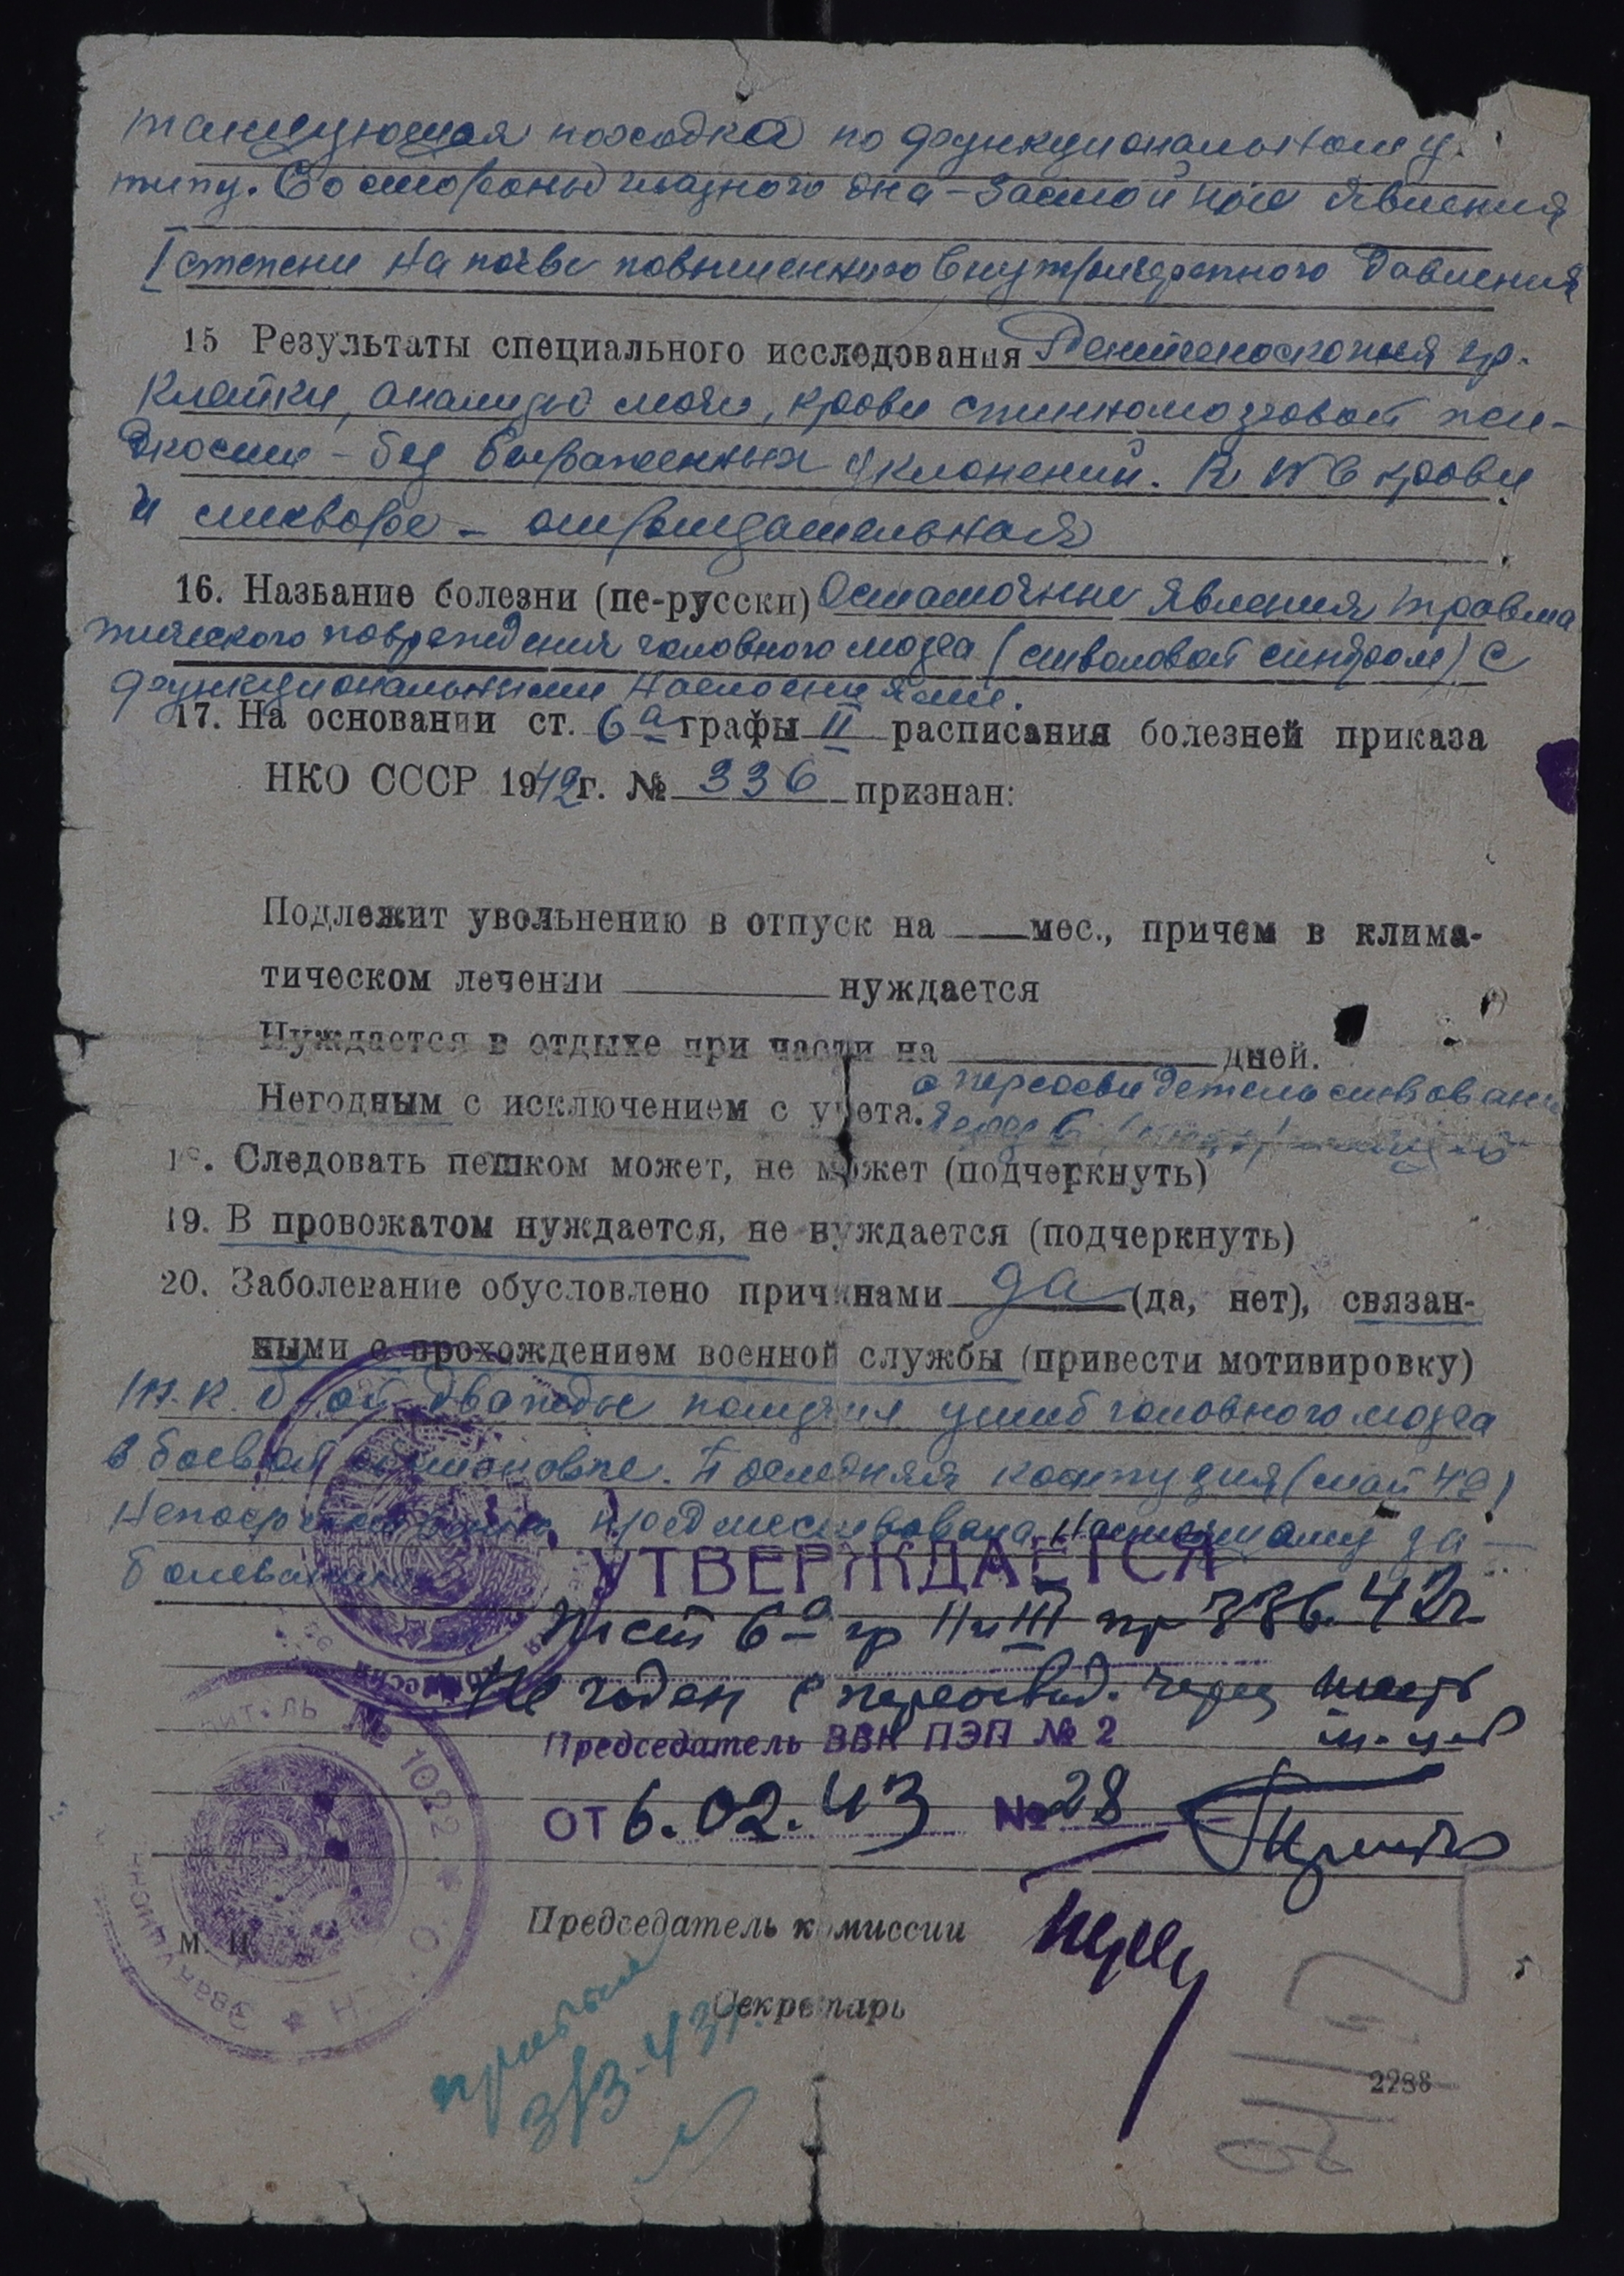 танцующая походка по функциональному
типу. Со стороны глазного дна - застойные явления
I степени на почве повышенного внутричерепного давления
15 Результаты специального исследования Рентгеноскопия гр.
клетки, анализы мочи, крови спинномозговой жи-
дкости - без выраженных уклонений. RW в крови
и ликворе - отрицательная
16. Название болезни (пе-русски) Остаточные явления травма
тического повреждения головного мозга (стволовой синдром) с
функциональными наслоениями.
17. На основании ст. 6а графы II расписания болезней приказа
НКО СССР 1942г. № 336 признан:
Подлежит увольнению в отпуск на мес., причем в клима-
тическом лечении нуждается
Нуждается в отдыхе при части на дней.
Негодным с исключением с учета. с переосвидетельствован
через 6 месяцев
18. Следовать пешком может, не может (подчеркнуть)
19. В провожатом нуждается, не нуждается (подчеркнуть)
20. Заболевание обусловлено причинами да (да, нет), связан-
ными с прохождением военной службы (привести мотивировку)
т.к. б-ой дважды получил ушиб головного мозга
в боевой обстановке. Последняя контузия (май 42)
непосредственно предшествовала настоящему за-
болеванию
УТВЕРЖДАЕТСЯ
По ст 6а гр II и III пр 336. 42г
Не годен с переосвид. через шесть
м-цев
Председатель ВВК ПЭП № 2
от 6.02.43 № 28
№ 1022
Председатель комиссии
М. П.
Секретарь
прибыл
3/3-43г.
2288